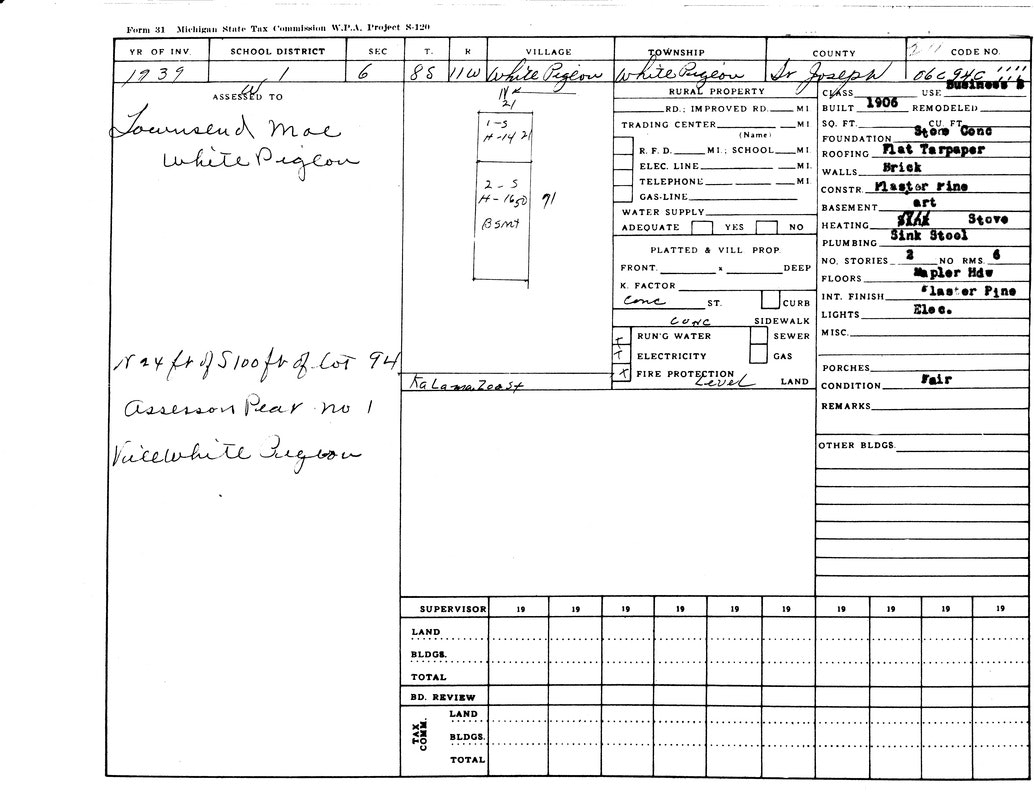 Form 31 Michigan State Tax Commission W.P.A. Project S-120
YR OF INV. SCHOOL DISTRICT SEC T. R VILLAGE TOWNSHIP COUNTY CODE NO.
1939 1 6 8S 11W White Pigeon White Pigeon St Joseph 06C 94C
ASSESSED TO
Townsend Mae
White Pigeon
N 24 ft of S 100 ft of Lot 94
Assessors Plat no 1
White Pigeon
21
1-S
H-14 21
2-S
H-1650 71
Bsmt
Kalamazoo St
RURAL PROPERTY
RD.; IMPROVED RD. MI
TRADING CENTER MI
(Name)
R. F. D. MI.; SCHOOL MI.
ELEC. LINE MI.
TELEPHONE MI.
GAS-LINE
WATER SUPPLY
ADEQUATE YES NO
PLATTED & VILL PROP.
FRONT. x DEEP
K. FACTOR
Conc ST. CURB
Conc SIDEWALK
x RUN'G WATER SEWER
x ELECTRICITY GAS
x FIRE PROTECTION
Level LAND
CLASS USE Business B
BUILT 1906 REMODELED
SQ. FT. CU. FT.
FOUNDATION Stone Conc
ROOFING Flat Tarpaper
WALLS Brick
CONSTR. Plaster Pine
BASEMENT art
HEATING Stove
PLUMBING Sink Stool
NO. STORIES 2 NO RMS. 6
FLOORS Mapler Hdw
INT. FINISH laster Pine
LIGHTS Elec.
MISC.
PORCHES
CONDITION Fair
REMARKS
OTHER BLDGS.
SUPERVISOR 19 19 19 19 19 19 19 19 19 19
LAND
BLDGS.
TOTAL
BD. REVIEW
TAX COMM.
LAND
BLDGS.
TOTAL